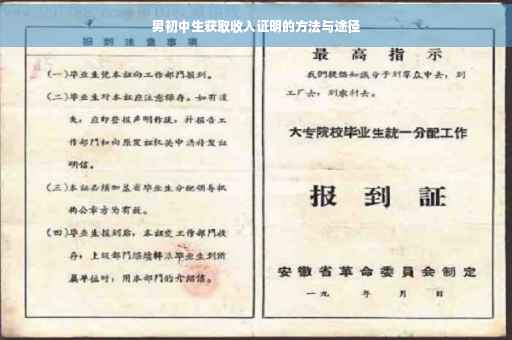 男初中生获取收入证明的方法与途径
报到注意事项
(一)毕业生凭本证向工作部门报到。
(二)毕业生对本证应注意保存。如有遗
失,应即登报声明作废,并报告工
作部门和向原发证机关申请补发证
明信。
(三)本证必须加盖省毕业生分配领导机
构公章方为有效。
(四)毕业生报到后,本证交工作部门收
存,上级部门继续转派毕业生到所
属单位时,用本部门的介绍信。
最高指示
我们提倡知识分子到群众中去,到
工厂去,到农村去。
大专院校毕业生統一分配工作
报到証
安徽省革命委員会制定
一九 年 月 日